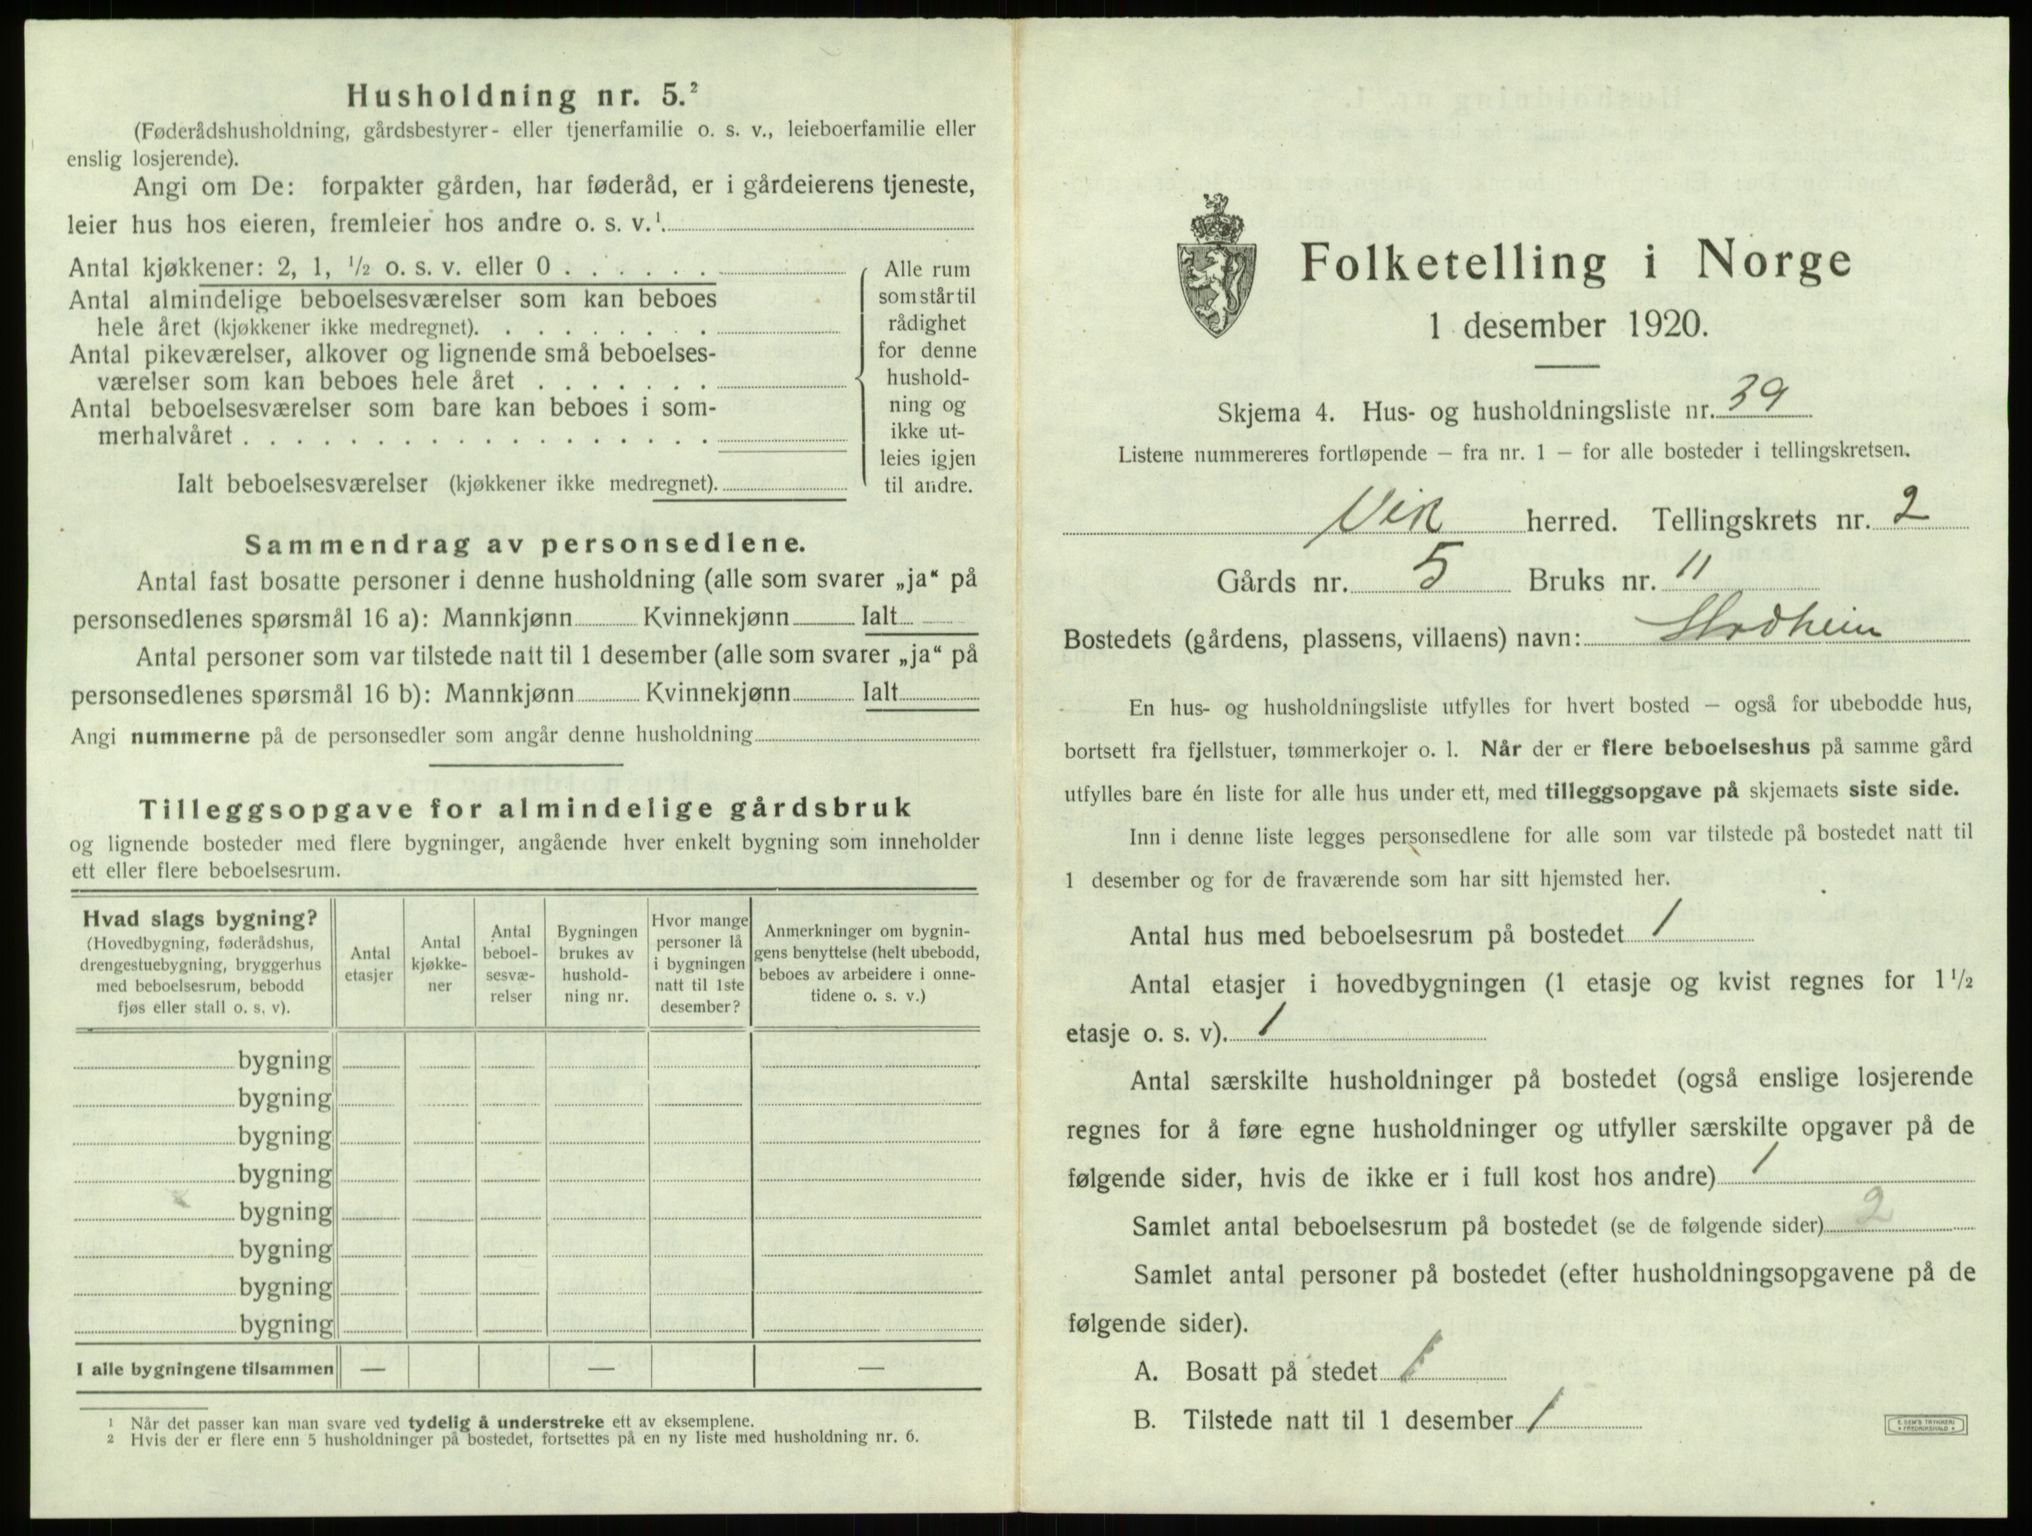 Husholdning nr. 5.²
(Føderådshusholdning, gårdsbestyrer- eller tjenerfamilie o. s. v., leieboerfamilie eller
enslig losjerende).
Angi om De: forpakter gården, har føderåd, er i gårdeierens tjeneste,
leier hus hos eieren, fremleier hos andre o. s. v.¹
Antal kjøkkener: 2, 1, ½ o. s. v. eller 0 . . . . . .
Antal almindelige beboelsesværelser som kan beboes
hele året (kjøkkener ikke medregnet). . . . . . . . .
Antal pikeværelser, alkover og lignende små beboelses-
værelser som kan beboes hele året . . . . . . .
Antal beboelsesværelser som bare kan beboes i som-
merhalvåret . . . . . . . . . . . . . . . . . .
Ialt beboelsesværelser (kjøkkener ikke medregnet).
Alle rum
som står til
rådighet
for denne
hushold-
ning og
ikke ut-
leies igjen
til andre.
Sammendrag av personsedlene.
Antal fast bosatte personer i denne husholdning (alle som svarer „ja“ på
personsedlenes spørsmål 16 a): Mannkjønn Kvinnekjønn Ialt
Antal personer som var tilstede natt til 1 desember (alle som svarer „ja“ på
personsedlenes spørsmål 16 b): Mannkjønn Kvinnekjønn Ialt
Angi nummerne på de personsedler som angår denne husholdning
Tilleggsopgave for almindelige gårdsbruk
og lignende bosteder med flere bygninger, angående hver enkelt bygning som inneholder
ett eller flere beboelsesrum.
Hvad slags bygning?
(Hovedbygning, føderådshus,
drengestuebygning, bryggerhus
med beboelsesrum, bebodd
fjøs eller stall o. s. v).
Antal
etasjer
Antal
kjøkke-
ner
Antal
beboel-
sesvæ-
relser
Bygningen
brukes av
hushold-
ning nr.
Hvor mange
personer lå
i bygningen
natt til 1ste
desember?
Anmerkninger om bygnin-
gens benyttelse (helt ubebodd,
beboes av arbeidere i onne-
tidene o. s. v.)
bygning
bygning
bygning
bygning
bygning
bygning
bygning
bygning
I alle bygningene tilsammen — — —
¹ Når det passer kan man svare ved tydelig å understreke ett av eksemplene.
² Hvis der er flere enn 5 husholdninger på bostedet, fortsettes på en ny liste med husholdning nr. 6.
Folketelling i Norge
1 desember 1920.
Skjema 4. Hus- og husholdningsliste nr. 39
Listene nummereres fortløpende – fra nr. 1 – for alle bosteder i tellingskretsen.
Vik herred. Tellingskrets nr. 2
Gårds nr. 5 Bruks nr. 11
Bostedets (gårdens, plassens, villaens) navn:
En hus- og husholdningsliste utfylles for hvert bosted – også for ubebodde hus,
bortsett fra fjellstuer, tømmerkojer o. l. Når der er flere beboelseshus på samme gård
utfylles bare én liste for alle hus under ett, med tilleggsopgave på skjemaets siste side.
Inn i denne liste legges personsedlene for alle som var tilstede på bostedet natt til
1 desember og for de fraværende som har sitt hjemsted her.
Antal hus med beboelsesrum på bostedet 1
Antal etasjer i hovedbygningen (1 etasje og kvist regnes for 1½
etasje o. s. v). 1
Antal særskilte husholdninger på bostedet (også enslige losjerende
regnes for å føre egne husholdninger og utfyller særskilte opgaver på de
følgende sider, hvis de ikke er i full kost hos andre) 1
Samlet antal beboelsesrum på bostedet (se de følgende sider) 2
Samlet antal personer på bostedet (efter husholdningsopgavene på de
følgende sider).
A. Bosatt på stedet 1
B. Tilstede natt til 1 desember 1
E. SEM'S TRYKKERI
FREDRIKSHALD